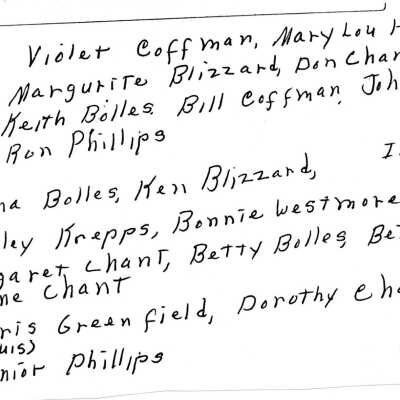 Violet Coffman, Mary Lou H
Margurite Blizzard, Don Char
Keith Bolles. Bill Coffman, Joh
Ron Phillips
na Bolles, Ken Blizzard, I
ley Krepps, Bonnie Westmore
garet Chant, Betty Bolles, Be
ne Chant
ris Greenfield, Dorothy Cha
uis)
nior Phillips